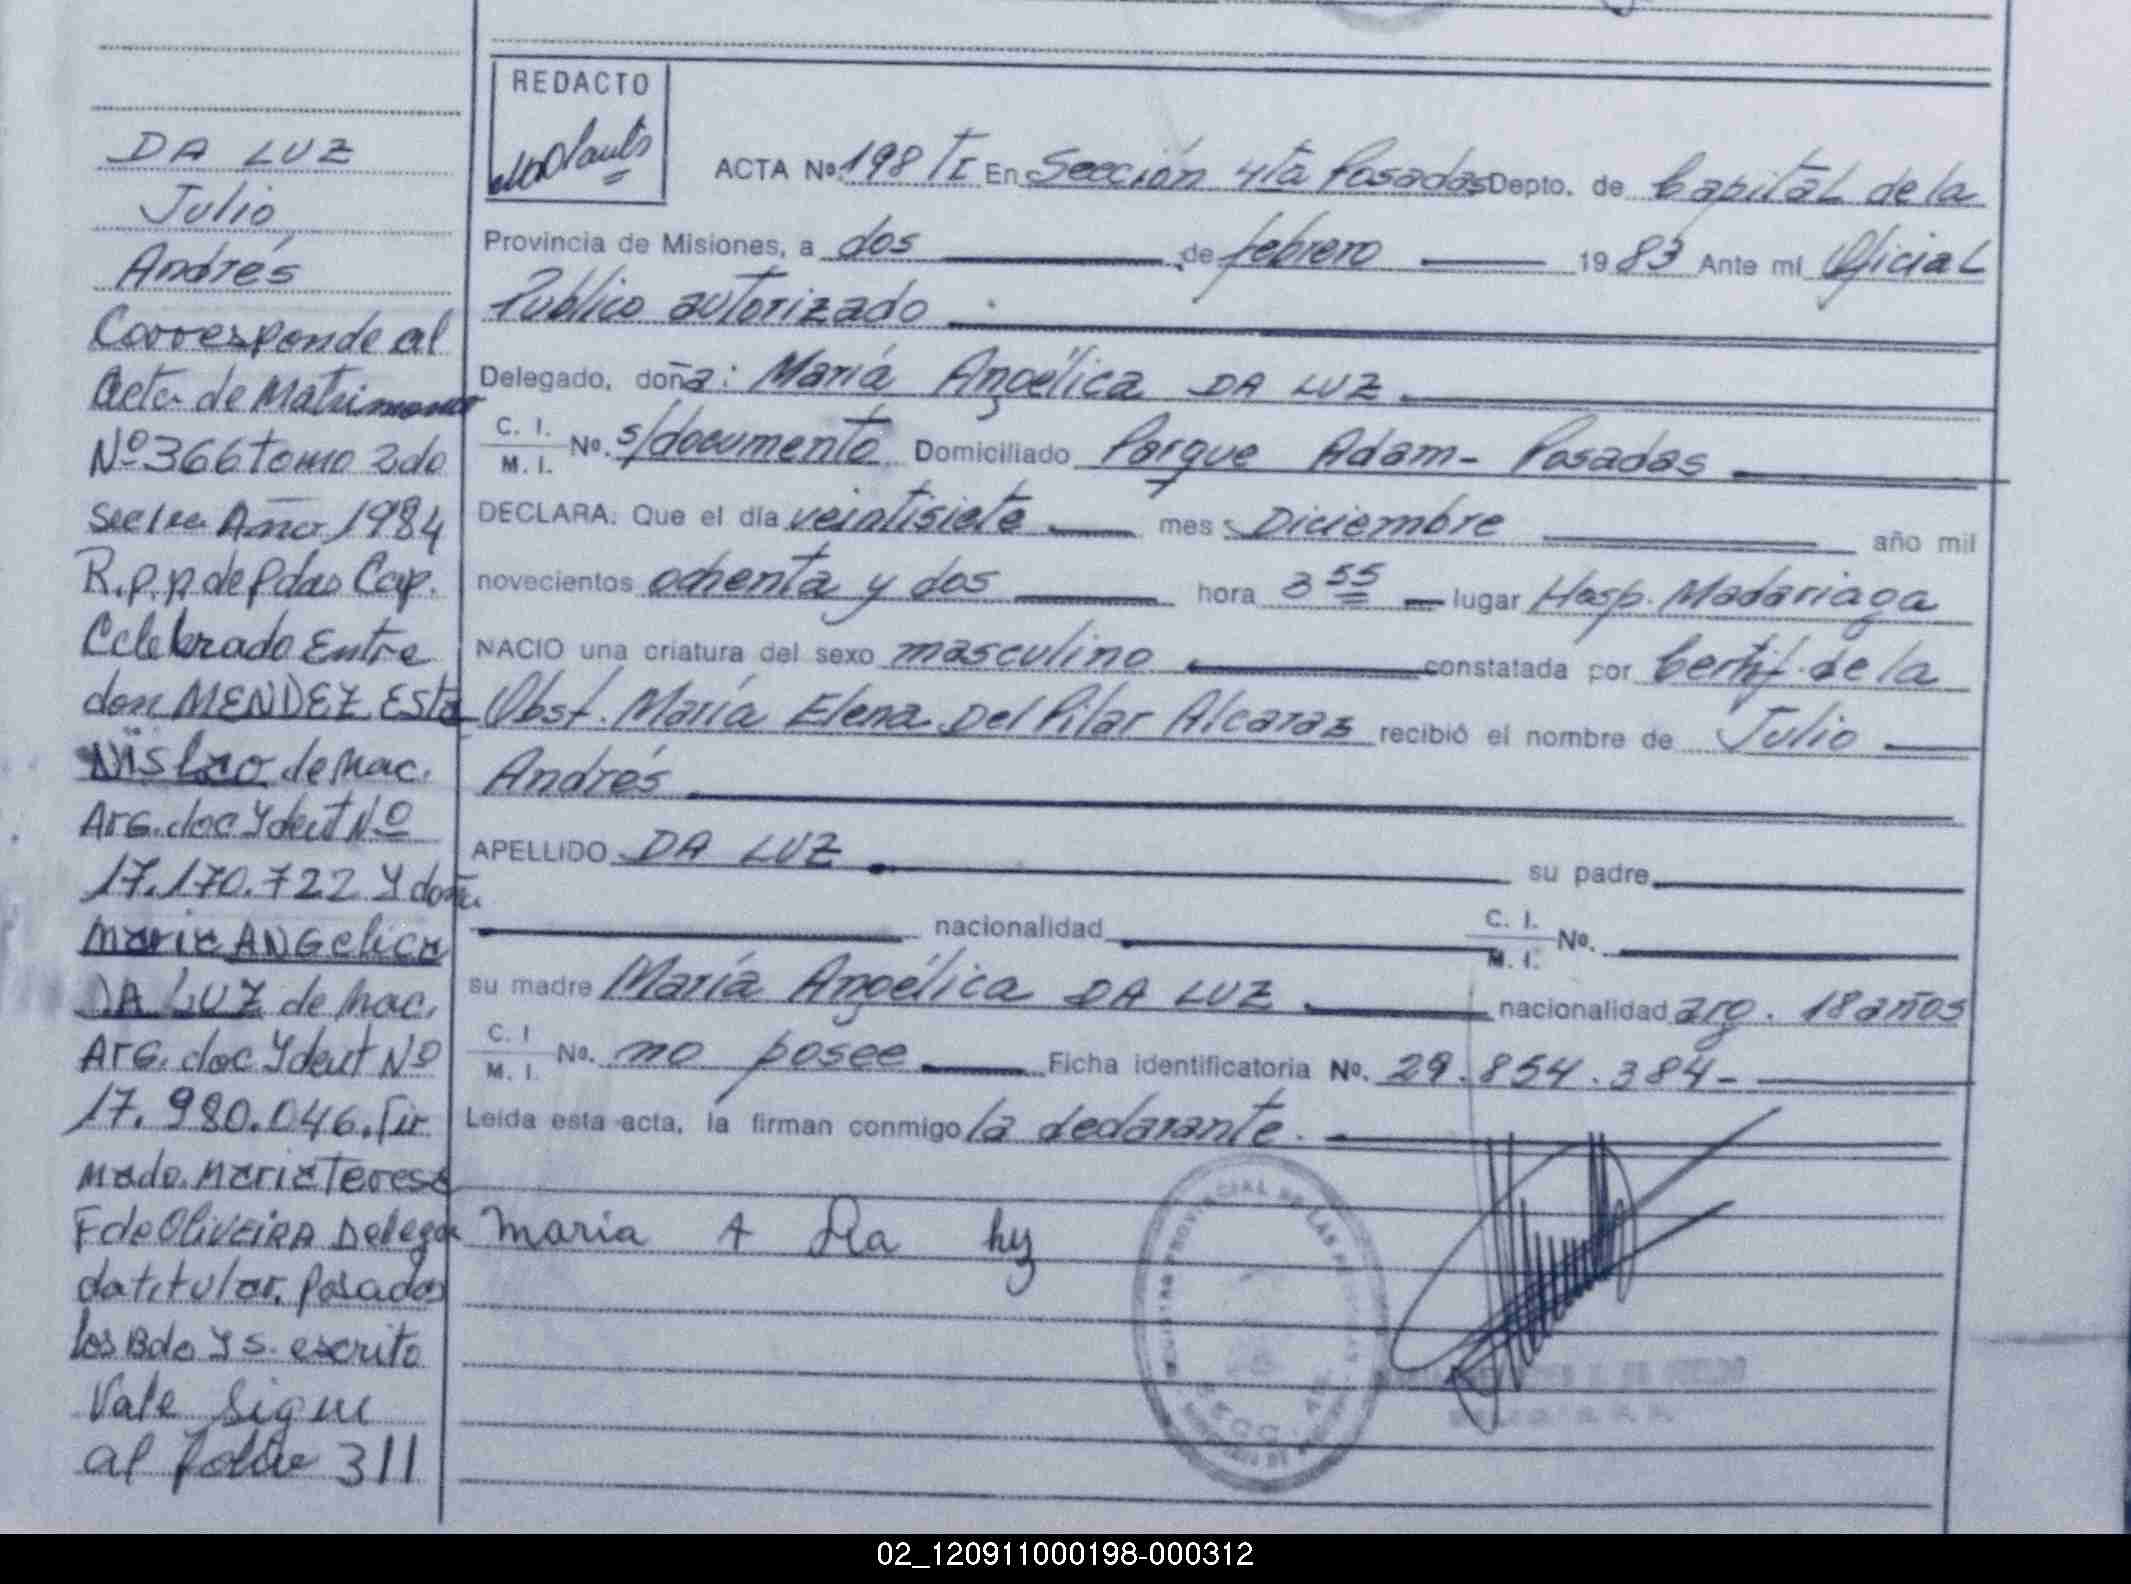 DA LUZ
Julio,
Andrés
Corresponde al
Acta de Matrimonio
Nº 366 tomo 2do
Año 1984
R.p.p. de Pdas Cap.
Celebrado Entre
don MENDEZ Esta
Nislao de Nac.
Arg. doc Ydent Nº
17.170.722 Y doña
Maria ANGelica
DA LUZ de Nac.
Arg. doc Ydent Nº
17.980.046. Fir
mado. Maria Teresa
F de OLIVEIRA Delega
da titular. Posadas
escrito
Vale Sigue
al folio 311
REDACTO
ACTA Nº 198 TI En Sección 4ta Posadas Depto. de Capital de la
Provincia de Misiones, a dos de febrero 1983 Ante mi Oficial
Público autorizado
Delegado, doña: María Angélica DA LUZ
C. I.
M. I. Nº. s/documento Domiciliado Parque Adam- Posadas
DECLARA: Que el día veintisiete mes Diciembre año mil
novecientos ochenta y dos hora 3 55 lugar Hosp. Madariaga
NACIO una criatura del sexo masculino constatada por Certif. de la
Obst. María Elena Del Pilar Alcaraz recibió el nombre de Julio
Andrés
APELLIDO DA LUZ su padre
nacionalidad C. I. M. I. Nº.
su madre María Angélica DA LUZ nacionalidad arg. 18 años
C. I. M. I. Nº. no posee Ficha identificatoria Nº. 29.854.384-
Leída esta acta, la firman conmigo la declarante.
Maria A Da
02_120911000198-000312